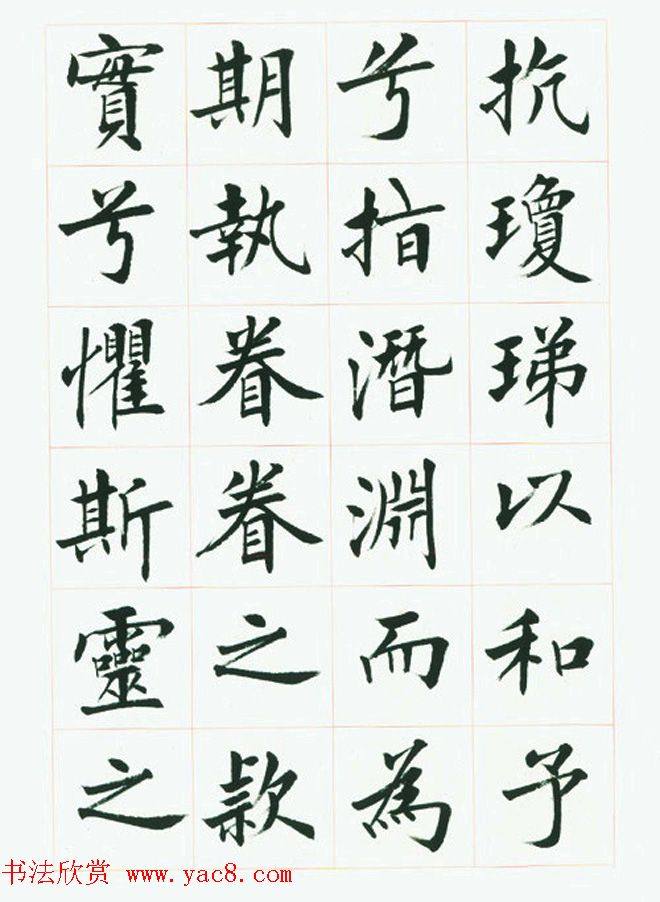 抗瓊珶以和予
兮指潛淵而為
期執眷眷之款
實兮懼斯靈之
书法欣赏 www.yac8.com